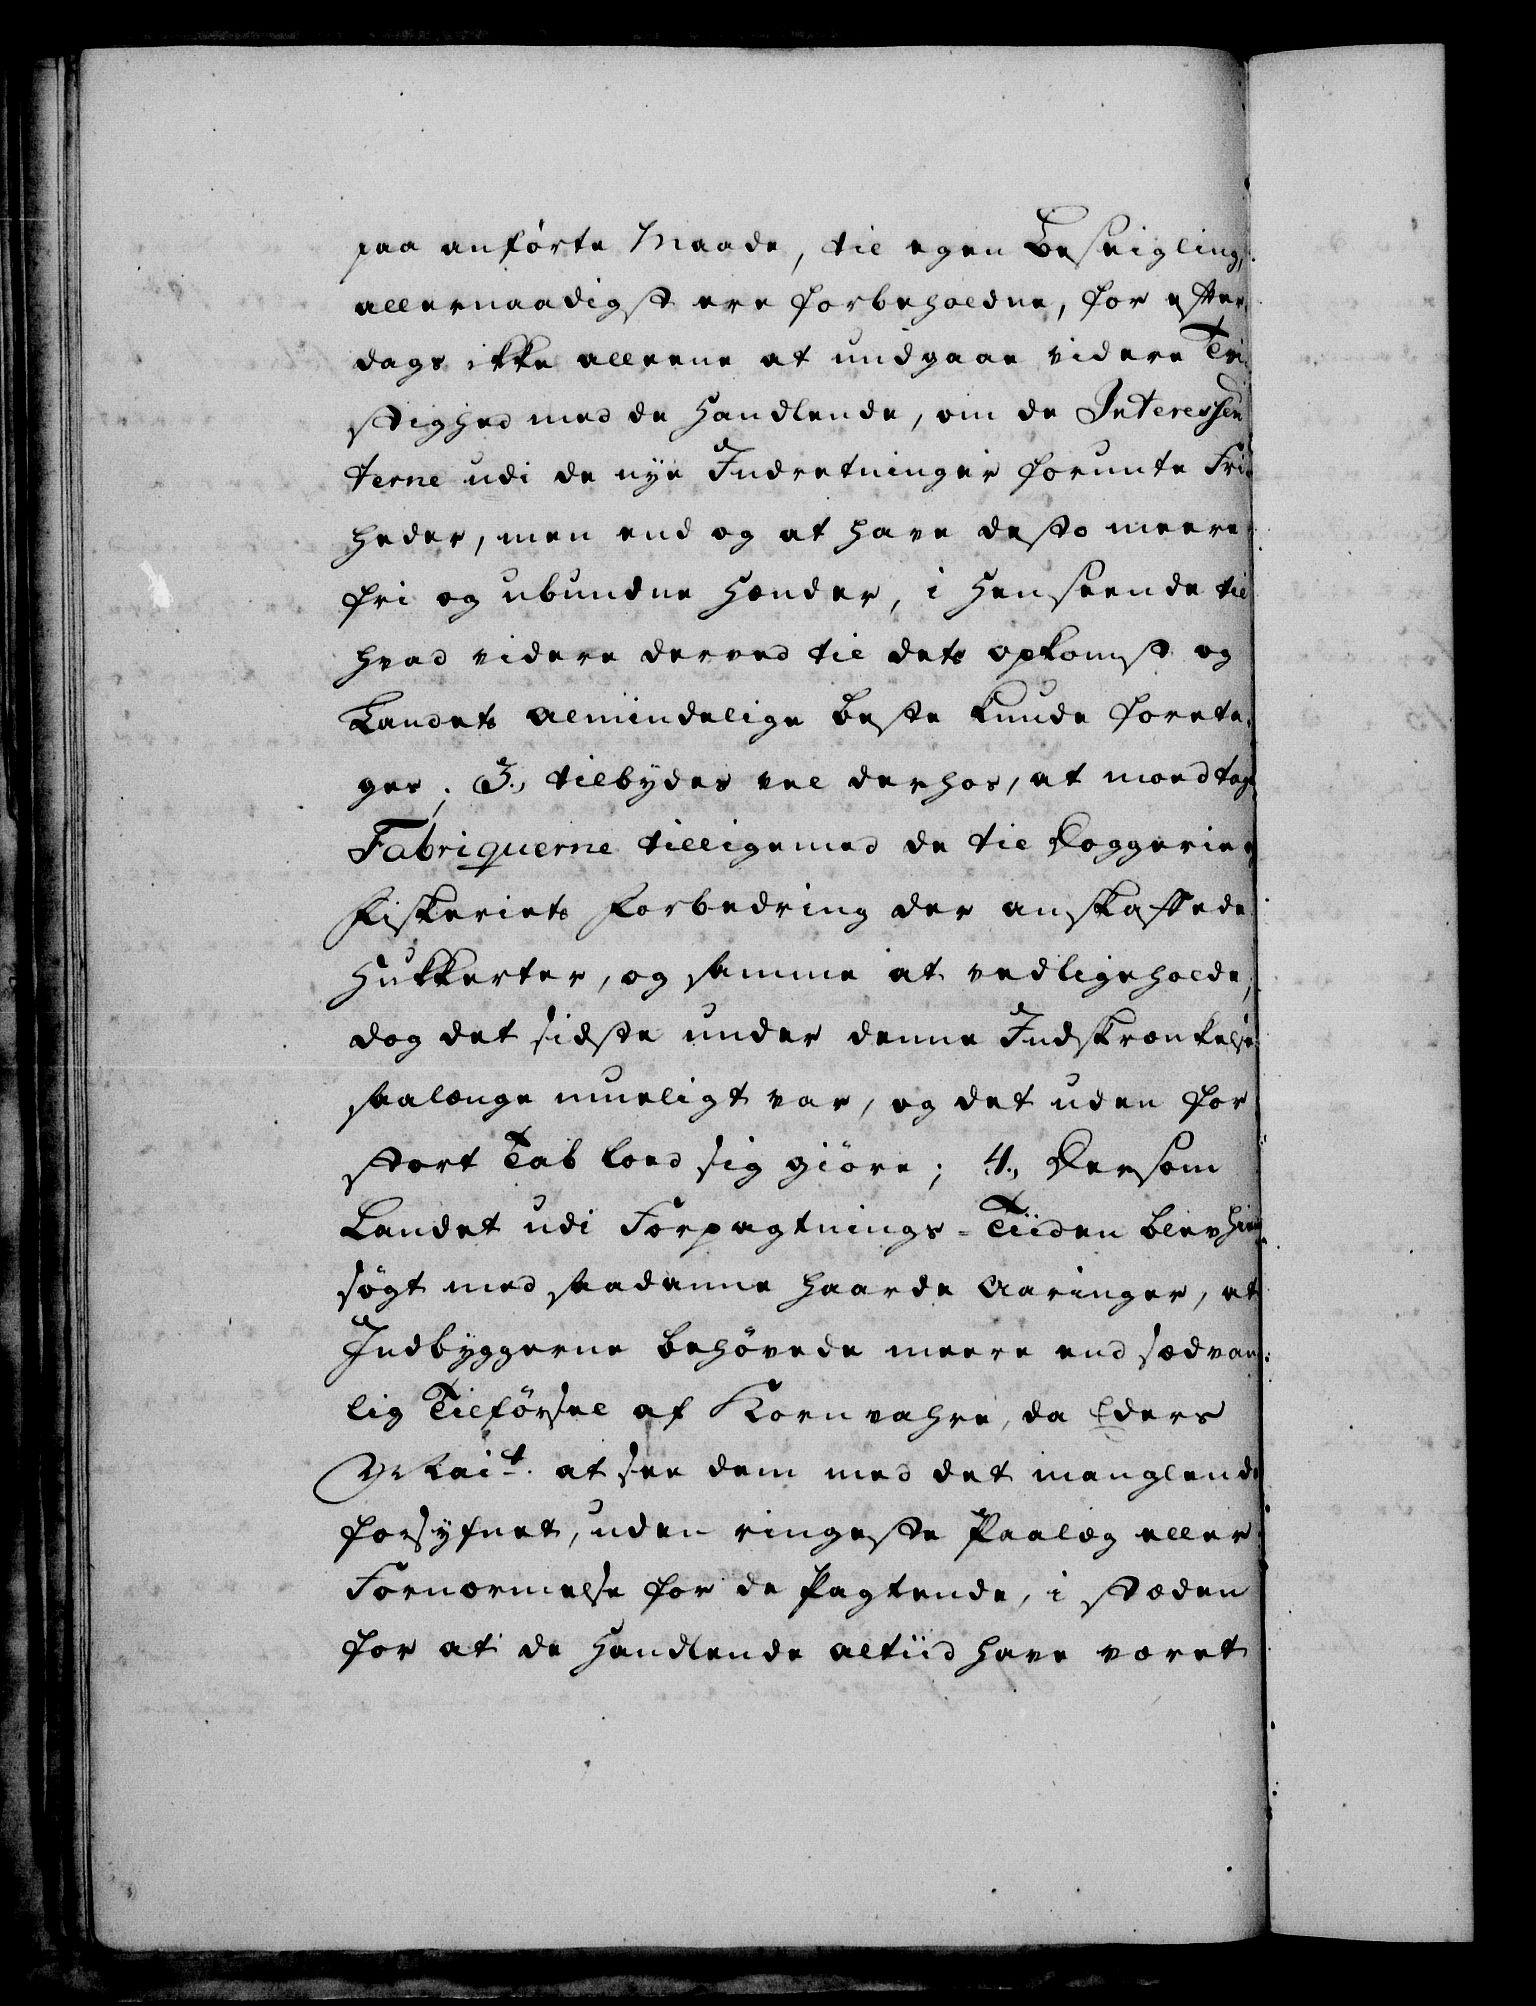 paa anførte Maade, til egen Beseigling,
allernaadigst ere forbeholdne, for efter
dags ikke alleene at undgaae videre Tvi
stighed med de Handlende, om de Interessen
terne udi de nye Indretninger forunte Fri
heder, men end og at have desto meere
fri og ubundne Hænder, i Henseende til
hvad videre derved til dets opkomst og
Landets almindelige beste kunde foreta,
ges; 3., tilbydes vel derhos, at modtage
Fabriquerne tilligemed de til Doggeriet
Fiskeriets Forbedring der anskaffede
Hukkerter, og samme at vedligeholde,
dog det sidste under denne Indskrænkelse
saalænge mueligt var, og det uden for
stort Tab loed sig giøre; 4., Dersom
Landet udi Forpagtnings-Tiiden blev hiem
søgt med saadanne haarde Aaringer, at
Indbyggerne behøvede meere end sædvan
lig Tilførsel af Kornvahre, da Eders
Mait. at see dem med det manglende
forsyfnet, uden ringeste Paalæg eller
Fornærmelse for de Pagtende, i stæden
for at de Handlende altiid have været